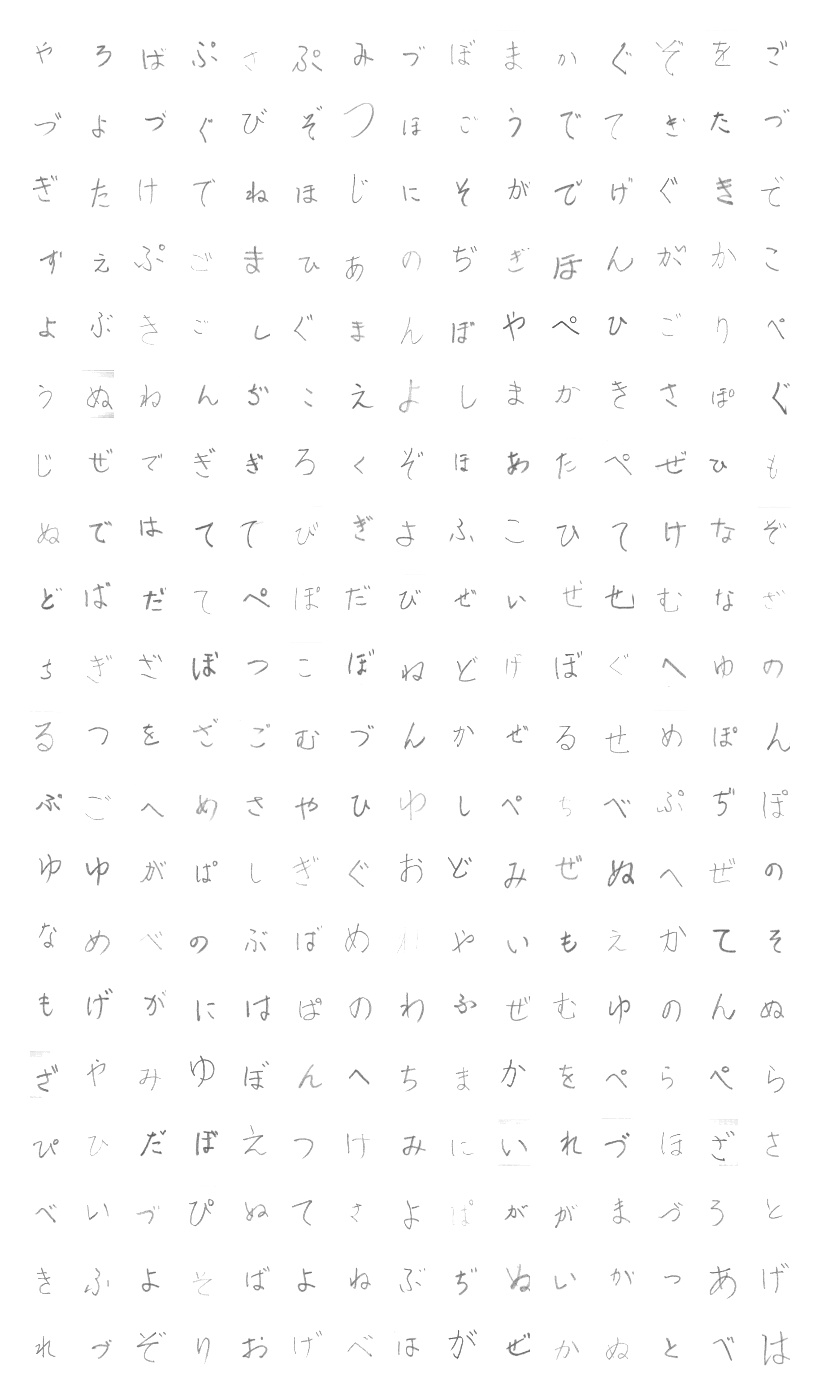 やろばぷさぷみづぼまかぐぞをご
づよづぐびぞつほごうでてぎたづ
ぎたけでねほじにそがでげぐきで
ずえぷごまひあのぢぎほんがかこ
よぶきごしぐまんぼやぺひごりぺ
うぬねんぢこえよしまかきさぽぐ
じぜでぎぎろくぞほあたぺぜひも
ぬではててびぎよふこひてけなぞ
どばだてぺぽだびぜいぜせむなざ
ちぎざぼつこぼねどげぼぐへゆの
るつをざごむづんかぜるせめぽん
ぷごへめさやひゆしぺちべぷぢぽ
ゆゆがぱしぎぐおどみぜぬへぜの
なめべのぶばめれやいもえかてそ
もげがにはぱのわふぜむゆのんぬ
ざやみゆぼんへちまかをぺらぺら
ぴひだぼえつけみにいれづほざさ
べいづぴぬてさよぱががまづろと
きふよそばよねぶぢぬいがつあげ
れづぞりおげべほがぜかぬとべは